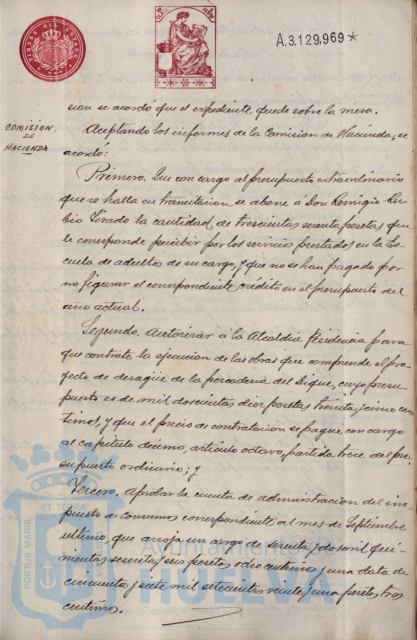 TIMBRE DEL ESTADO
A.3.129,969*
sion se acordó que el expediente quede sobre la mesa.
COMISION
DE
HACIENDA
Aceptando los informes de la Comision de Hacienda, se
acordó:
Primero. Que con cargo al presupuesto extraordinario
que se halla en tramitacion se abone a Don Remigio Ru-
bio Tirado la cantidad de trescientas sesenta pesetas que
le corresponde percibir por los servicios prestados en la Es-
cuela de adultos de su cargo, y que no se han pagado por
no figurar el correspondiente crédito en el presupuesto del
año actual.
Segundo. Autorizar á la Alcaldia Presidencia para
que contrate la ejecucion de las obras que comprende el pro-
yecto de desagüe de la pescaderia del Dique, cuyo presu-
puesto es de mil doscientas diez pesetas treinta y cinco cen-
timos, y que el precio de contratacion se pague con cargo
al capitulo decimo, articulo octavo, partida trece del pre-
supuesto ordinario; y
Tercero. Aprobar la cuenta de administracion del im-
puesto de consumos correspondiente al mes de Septiembre
ultimo, que arroja un cargo de sesenta y dos mil qui-
nientas sesenta y seis pesetas ocho centimos y una data de
cincuenta y siete mil setecientas veinte y una pesetas, tres
centimos.
PORTUS MARIS
ET T
Ayuntamiento de
HUELVA